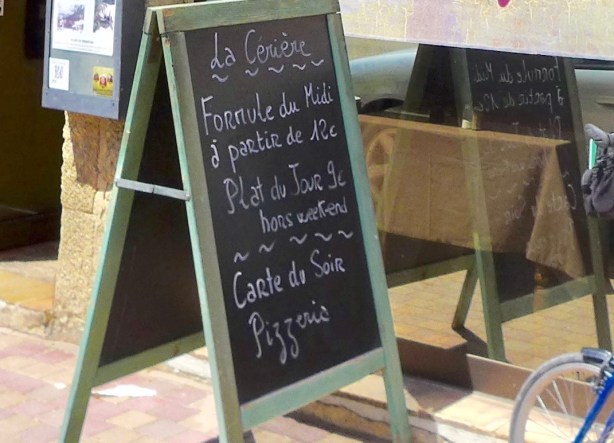 La Cérière
Formule du Midi
à partir de 12€
Plat du Jour 9€
hors week-end
Carte du Soir
Pizzeria